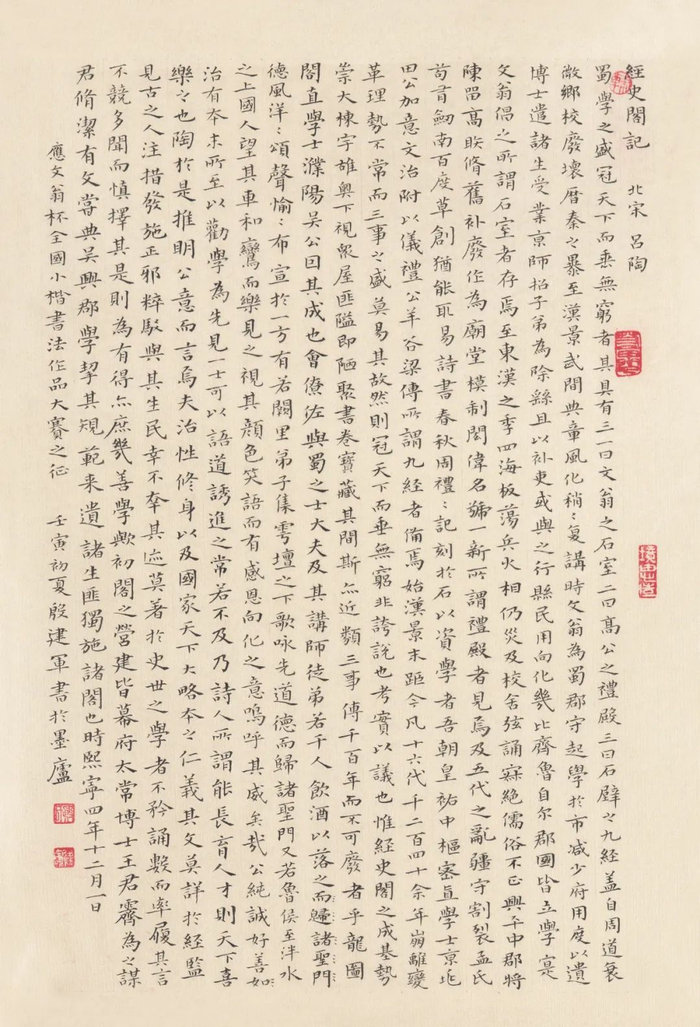 經史閣記 北宋 呂陶
蜀學之盛冠天下而垂無窮者其具有三一曰文翁之石室二曰高公之禮殿三曰石壁之九經蓋自周道衰
微鄉校廢壞曆秦之暴至漢景武間典章風化稍〻復講時文翁為蜀郡守起學於市減少府用度以遺
博士遣諸生受業京師招子弟為除繇且以补吏或與之行縣民用向化幾比齊魯自尔郡國皆立學寔
文翁倡之所謂石室者存焉至東漢之季四海板蕩兵火相仍災及校舍弦誦寐絕儒俗不正興平中郡將
陳留高䀢脩舊补廢作為廟堂模制閎偉名號一新所謂禮殿者見焉及五代之亂疆宇割裂孟氏
苟有劒南百度草創猶能取易詩書春秋周禮〻記刻於石以資學者吾朝皇祐中樞密直學士京兆
田公加意文治附以儀禮公羊谷梁傳所謂九經者備焉始漢景末距今凡十六代千二百四十余年崩離變
革理勢不常而三事之盛莫易其故然則冠天下而垂無窮非誇說也考實以議也惟經史閣之成基勢
崇大棟宇雄奧下視眾屋匪隘即陋聚書卷寶藏其間斯亦近類三事傳千百年而不可廢者乎龍圖
閣直學士濮陽吳公因其成也會僚佐與蜀之士大夫及其講師徒弟若千人飲酒以落之而歸諸聖門
德風洋〻頌聲愉〻布宣於一方有若闕里弟子集雩壇之下歌咏先道德而歸諸聖門又若魯侯至泮水
之上國人望其車和鸞而樂見之視其顏色笑語而有感恩向化之意嗚呼其盛矣哉公純誠好善如
治有本末所至以勸學為先見一士可以語道誘進之常若不及乃詩人所謂能長育人才則天下喜
樂之也陶於是推明公意而言焉夫治性修身以及國家天下大略本之仁義其文莫詳於經監
見古之人注措發施正邪粹駁與其生民幸不幸其迹莫著於史世之學者不矜誦數而率履其言
不競多聞而慎擇其是則為有得亦庶幾善學歟初閣之營建皆幕府太常博士王君霽為之謀
君脩潔有文嘗典吳興郡學挈其規範来遺諸生匪獨施諸閣也時熙寧四年十二月一日
應文翁杯全國小楷書法作品大賽之征 壬寅初夏殷建軍書於墨廬